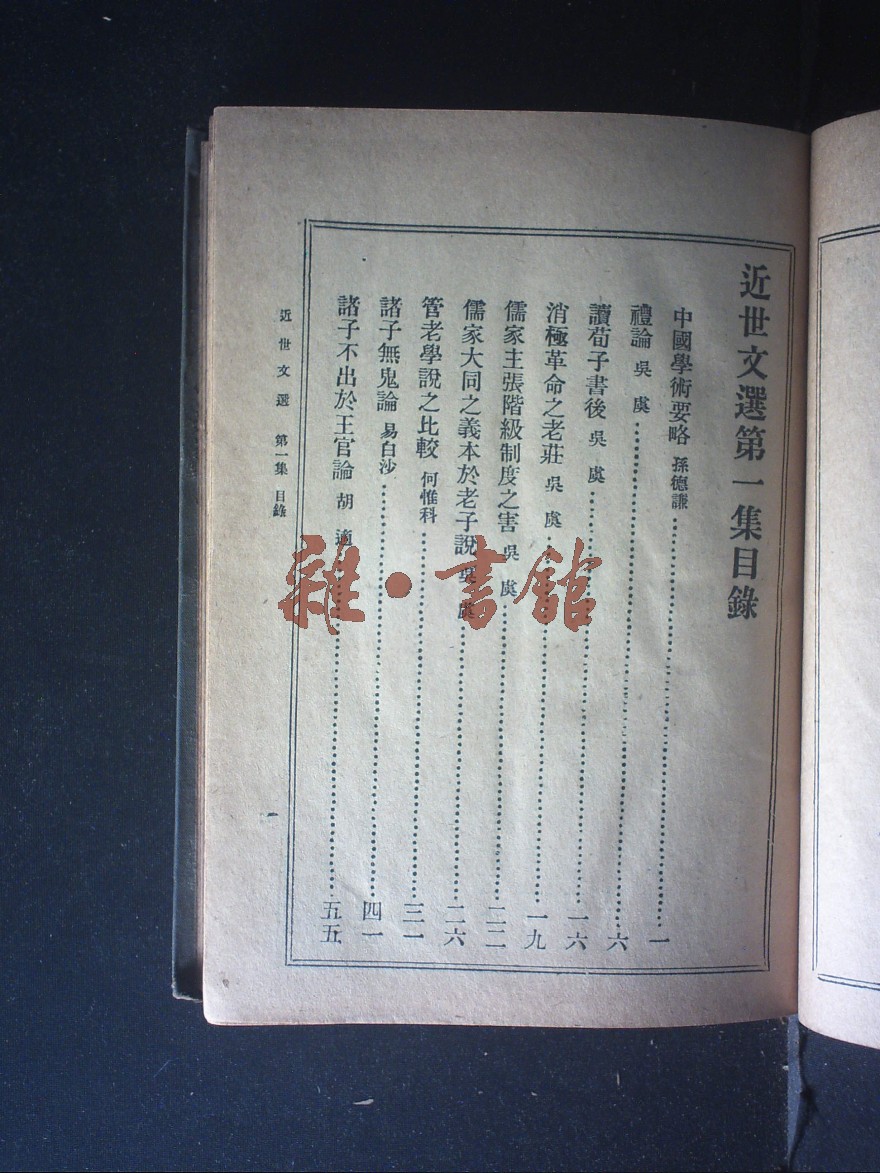 近世文選第一集目錄
中國學術要略 孫德謙……一
禮論 吳虞……六
讀荀子書後 吳虞……一六
消極革命之老莊 吳虞……一九
儒家主張階級制度之害 吳虞……二二
儒家大同之義本於老子說 吳虞……二六
管老學說之比較 何惟科……三一
諸子無鬼論 易白沙……四一
諸子不出於王官論 胡適……五五
近世文選 第一集 目錄
一
雜·書館